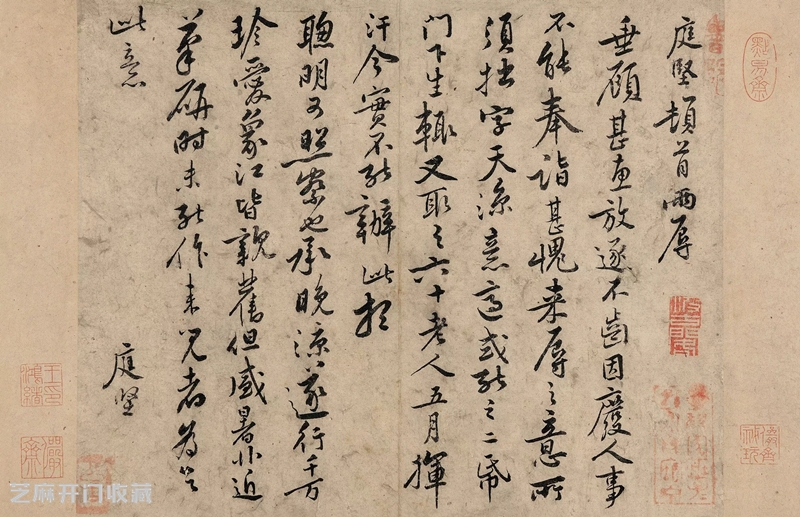 庭堅頓首兩辱
垂顧甚惠放逐不齒因廢人事
不能奉詣甚愧来辱之意所
須拙字天凉意適或能之二帋
門下生輒又取之六十老人五月揮
汗今實不能辦此想
聰明可照察也承晚凉遂行千万
珍愛象江皆親舊但盛暑非近
筆硯時未能作書見者為道
此意
庭堅
芝麻开门收藏